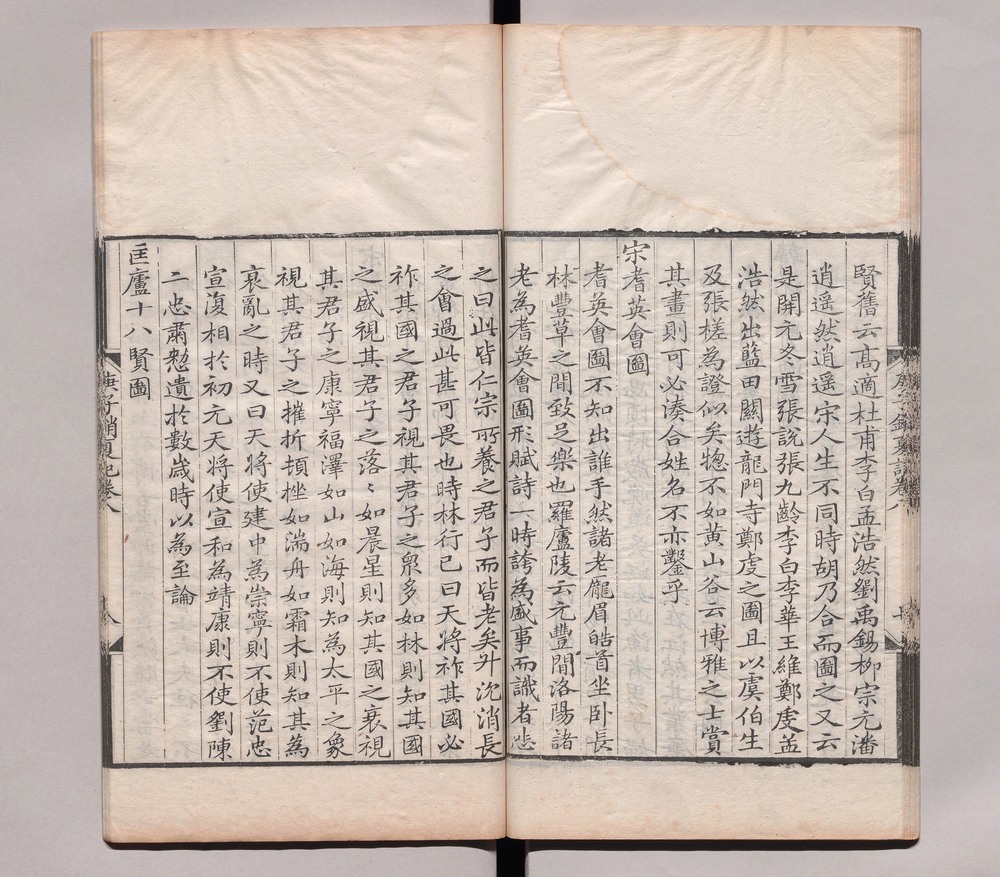 賢舊云高適杜甫李白孟浩然劉禹錫柳宗元潘
逍遥然逍遥宋人生不同時胡乃合而圖之又云
是開元冬雪張說張九齡李白李華王維鄭虔孟
浩然出藍田關遊龍門寺鄭虔之圖且以虞伯生
及張槎為證似矣惣不如黄山谷云博雅之士賞
其畫則可必湊合姓名不亦鑿乎
宋耆英會圖
耆英會圖不知出誰手然諸老龎眉皓首坐卧長
林豐草之間致足樂也羅廬陵云元豐間洛陽諸
老為耆英會圖形賦詩一時誇為盛事而識者悲
之曰此皆仁宗所養之君子而皆老矣升沈消長
之會過此甚可畏也時林行已曰天將祚其國必
祚其國之君子視其君子之衆多如林則知其國
之盛視其君子之落〻如晨星則知其國之衰視
其君子之康寧福澤如山如海則知為太平之象
視其君子之摧折頓挫如湍舟如霜木則知其為
衰亂之時又曰天將使建中為崇寧則不使范忠
宣復相於初元天將使宣和為靖康則不使劉陳
二忠肅憖遺於數嵗時以為至論
匡廬十八賢圖
庚子銷夏記卷八